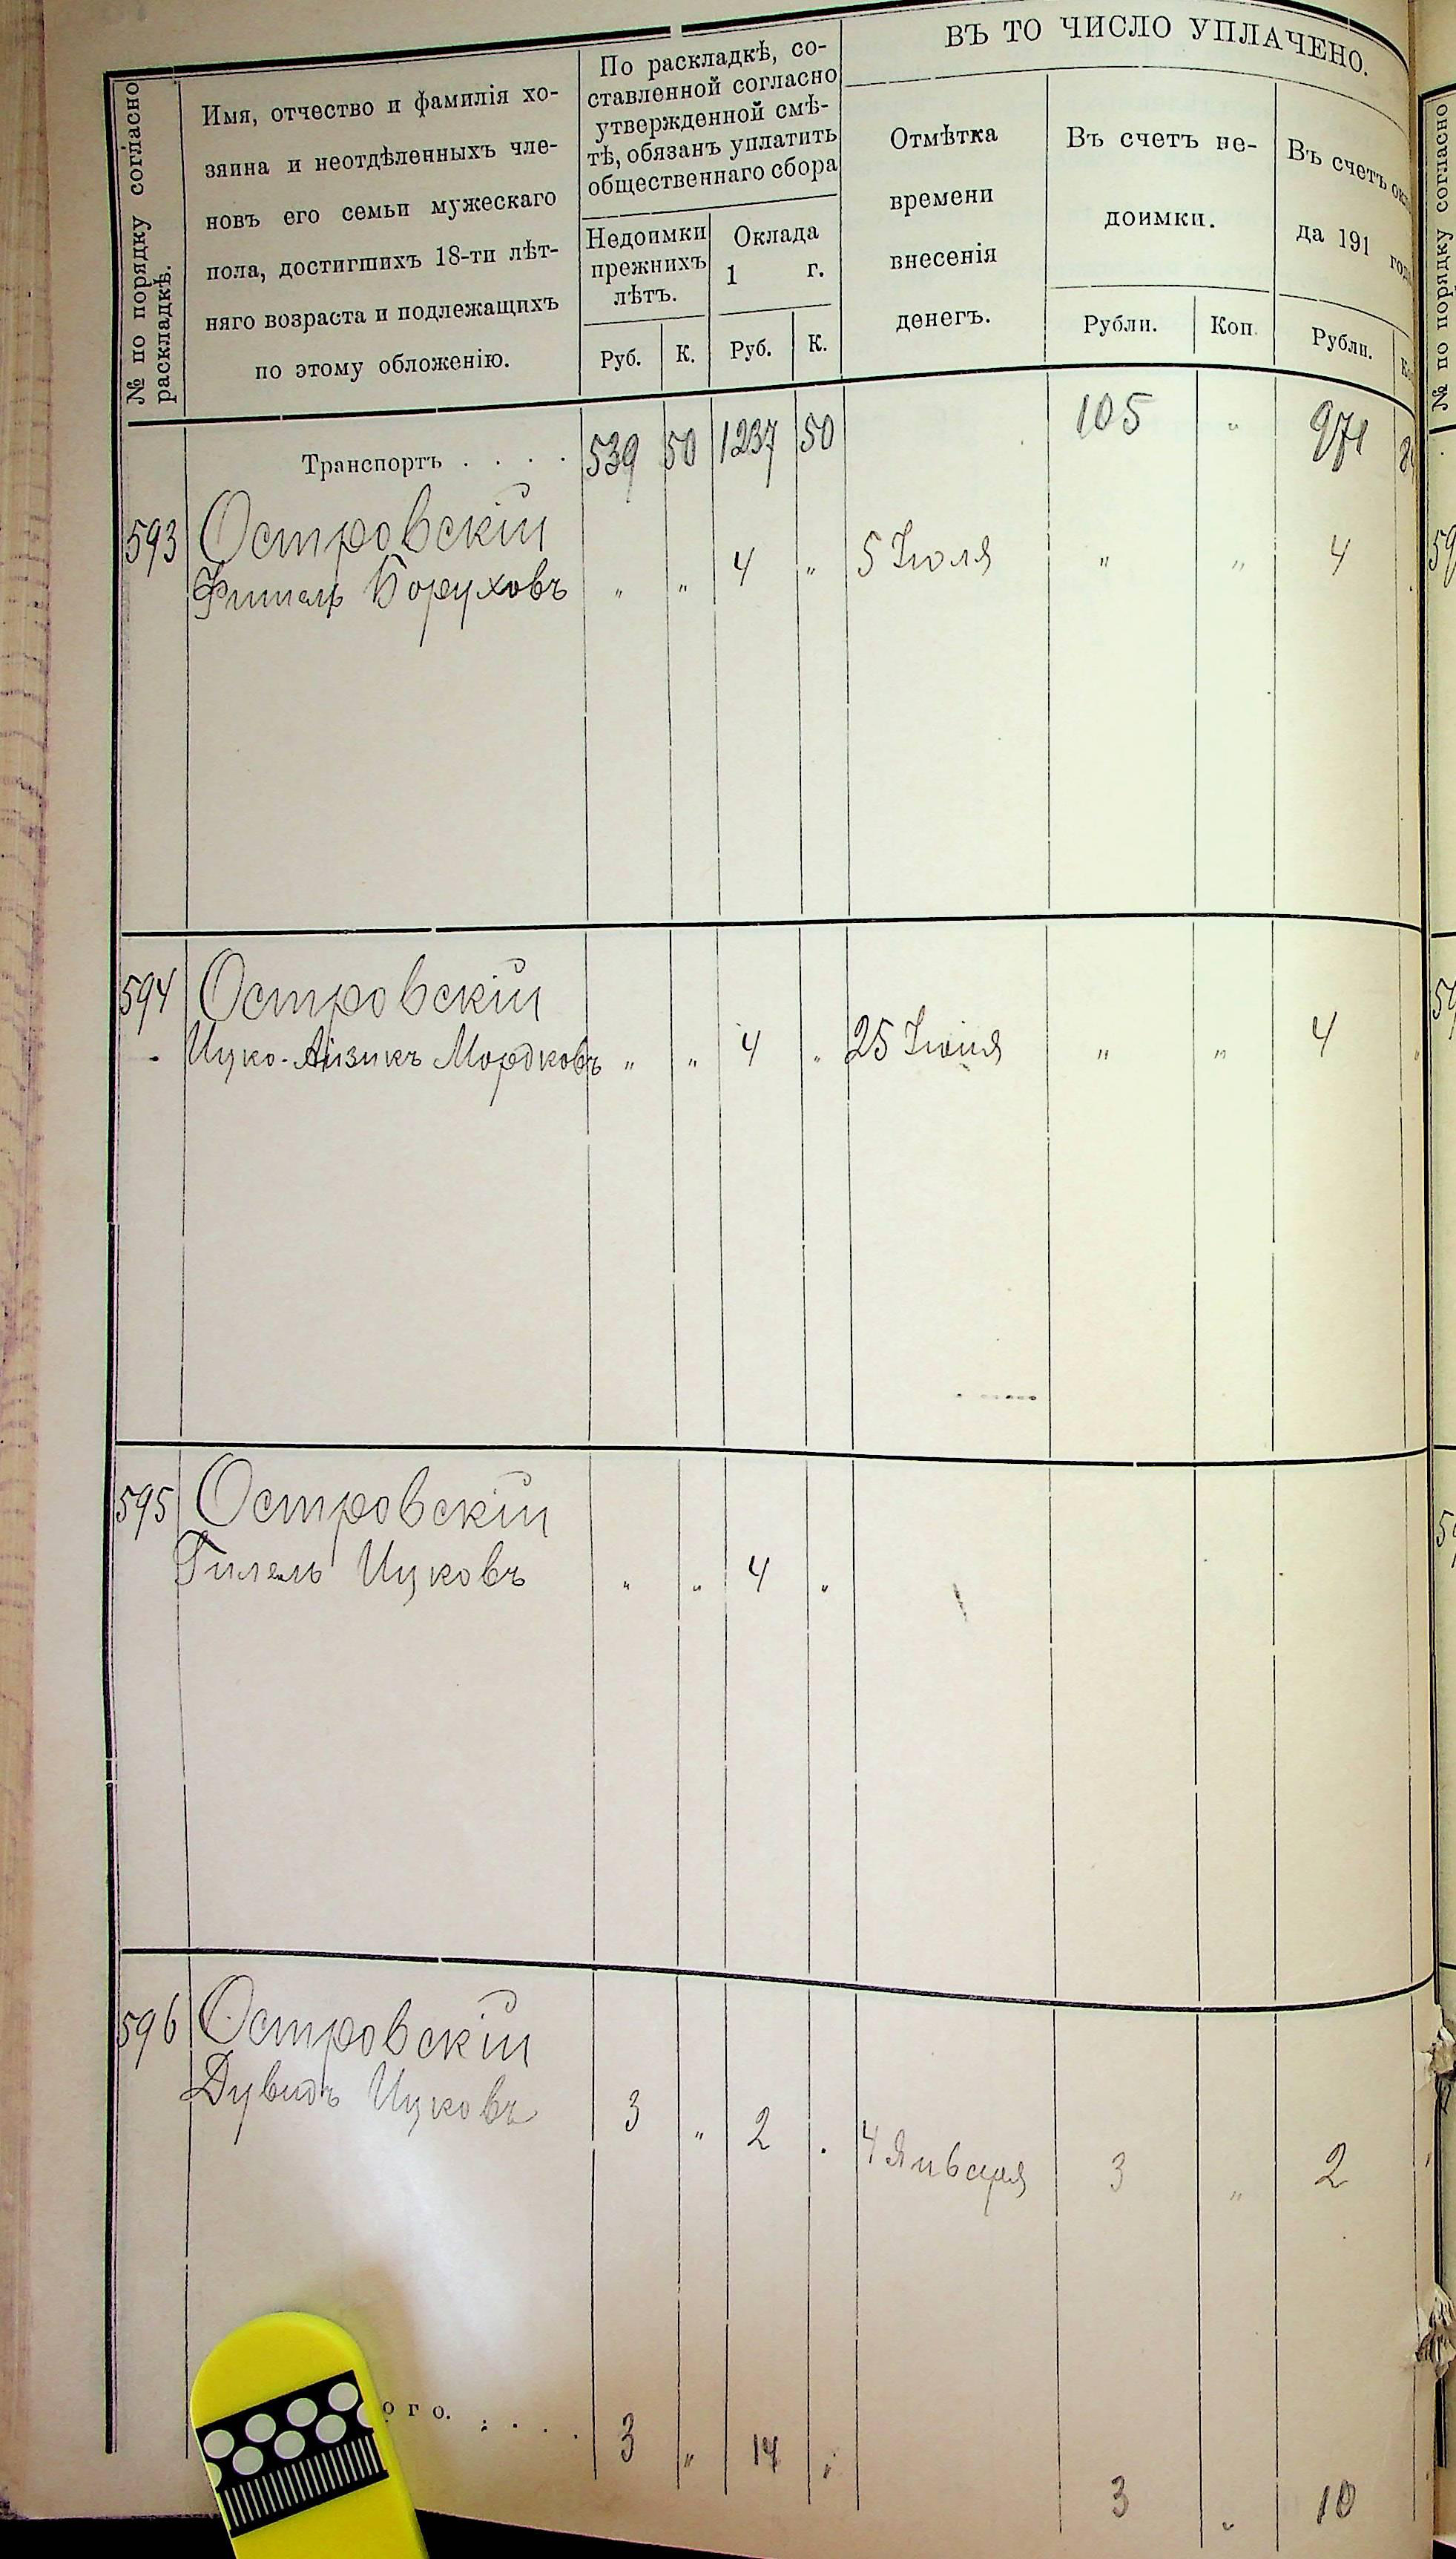 № по порядку согласно
раскладкѣ.
Имя, отчество и фамилія хо-
зяина и неотдѣленныхъ чле-
новъ его семьи мужескаго
пола, достигшихъ 18-ти лѣт-
няго возраста и подлежащихъ
по этому обложенію.
По раскладкѣ, со-
ставленной согласно
утвержденной смѣ-
тѣ, обязанъ уплатить
общественнаго сбора
Недоимки
прежнихъ
лѣтъ.
Оклада
1 г.
Руб. К. Руб. К.
ВЪ ТО ЧИСЛО УПЛАЧЕНО.
Отмѣтка
времени
внесенія
денегъ.
Въ счетъ не-
доимки.
Рубли. Коп.
Въ счетъ
да 191
Рубли.
Транспортъ . . . . 539 50 1237 50 105 " 971
593 Островскій
Фишель Боруховъ " " 4 " 5 Іюля " " 4
594 Островскій
Ицко-Айзикъ Мордковъ " " 4 " 25 Іюня " " 4
595 Островскій
Гилель Ицковъ " " 4 "
596 Островскій
Дувидъ Ицковъ 3 " 2 . 4 Января 3 " 2
ого. . . . 3 " 14 " 3 " 10
№ по порядку согласно